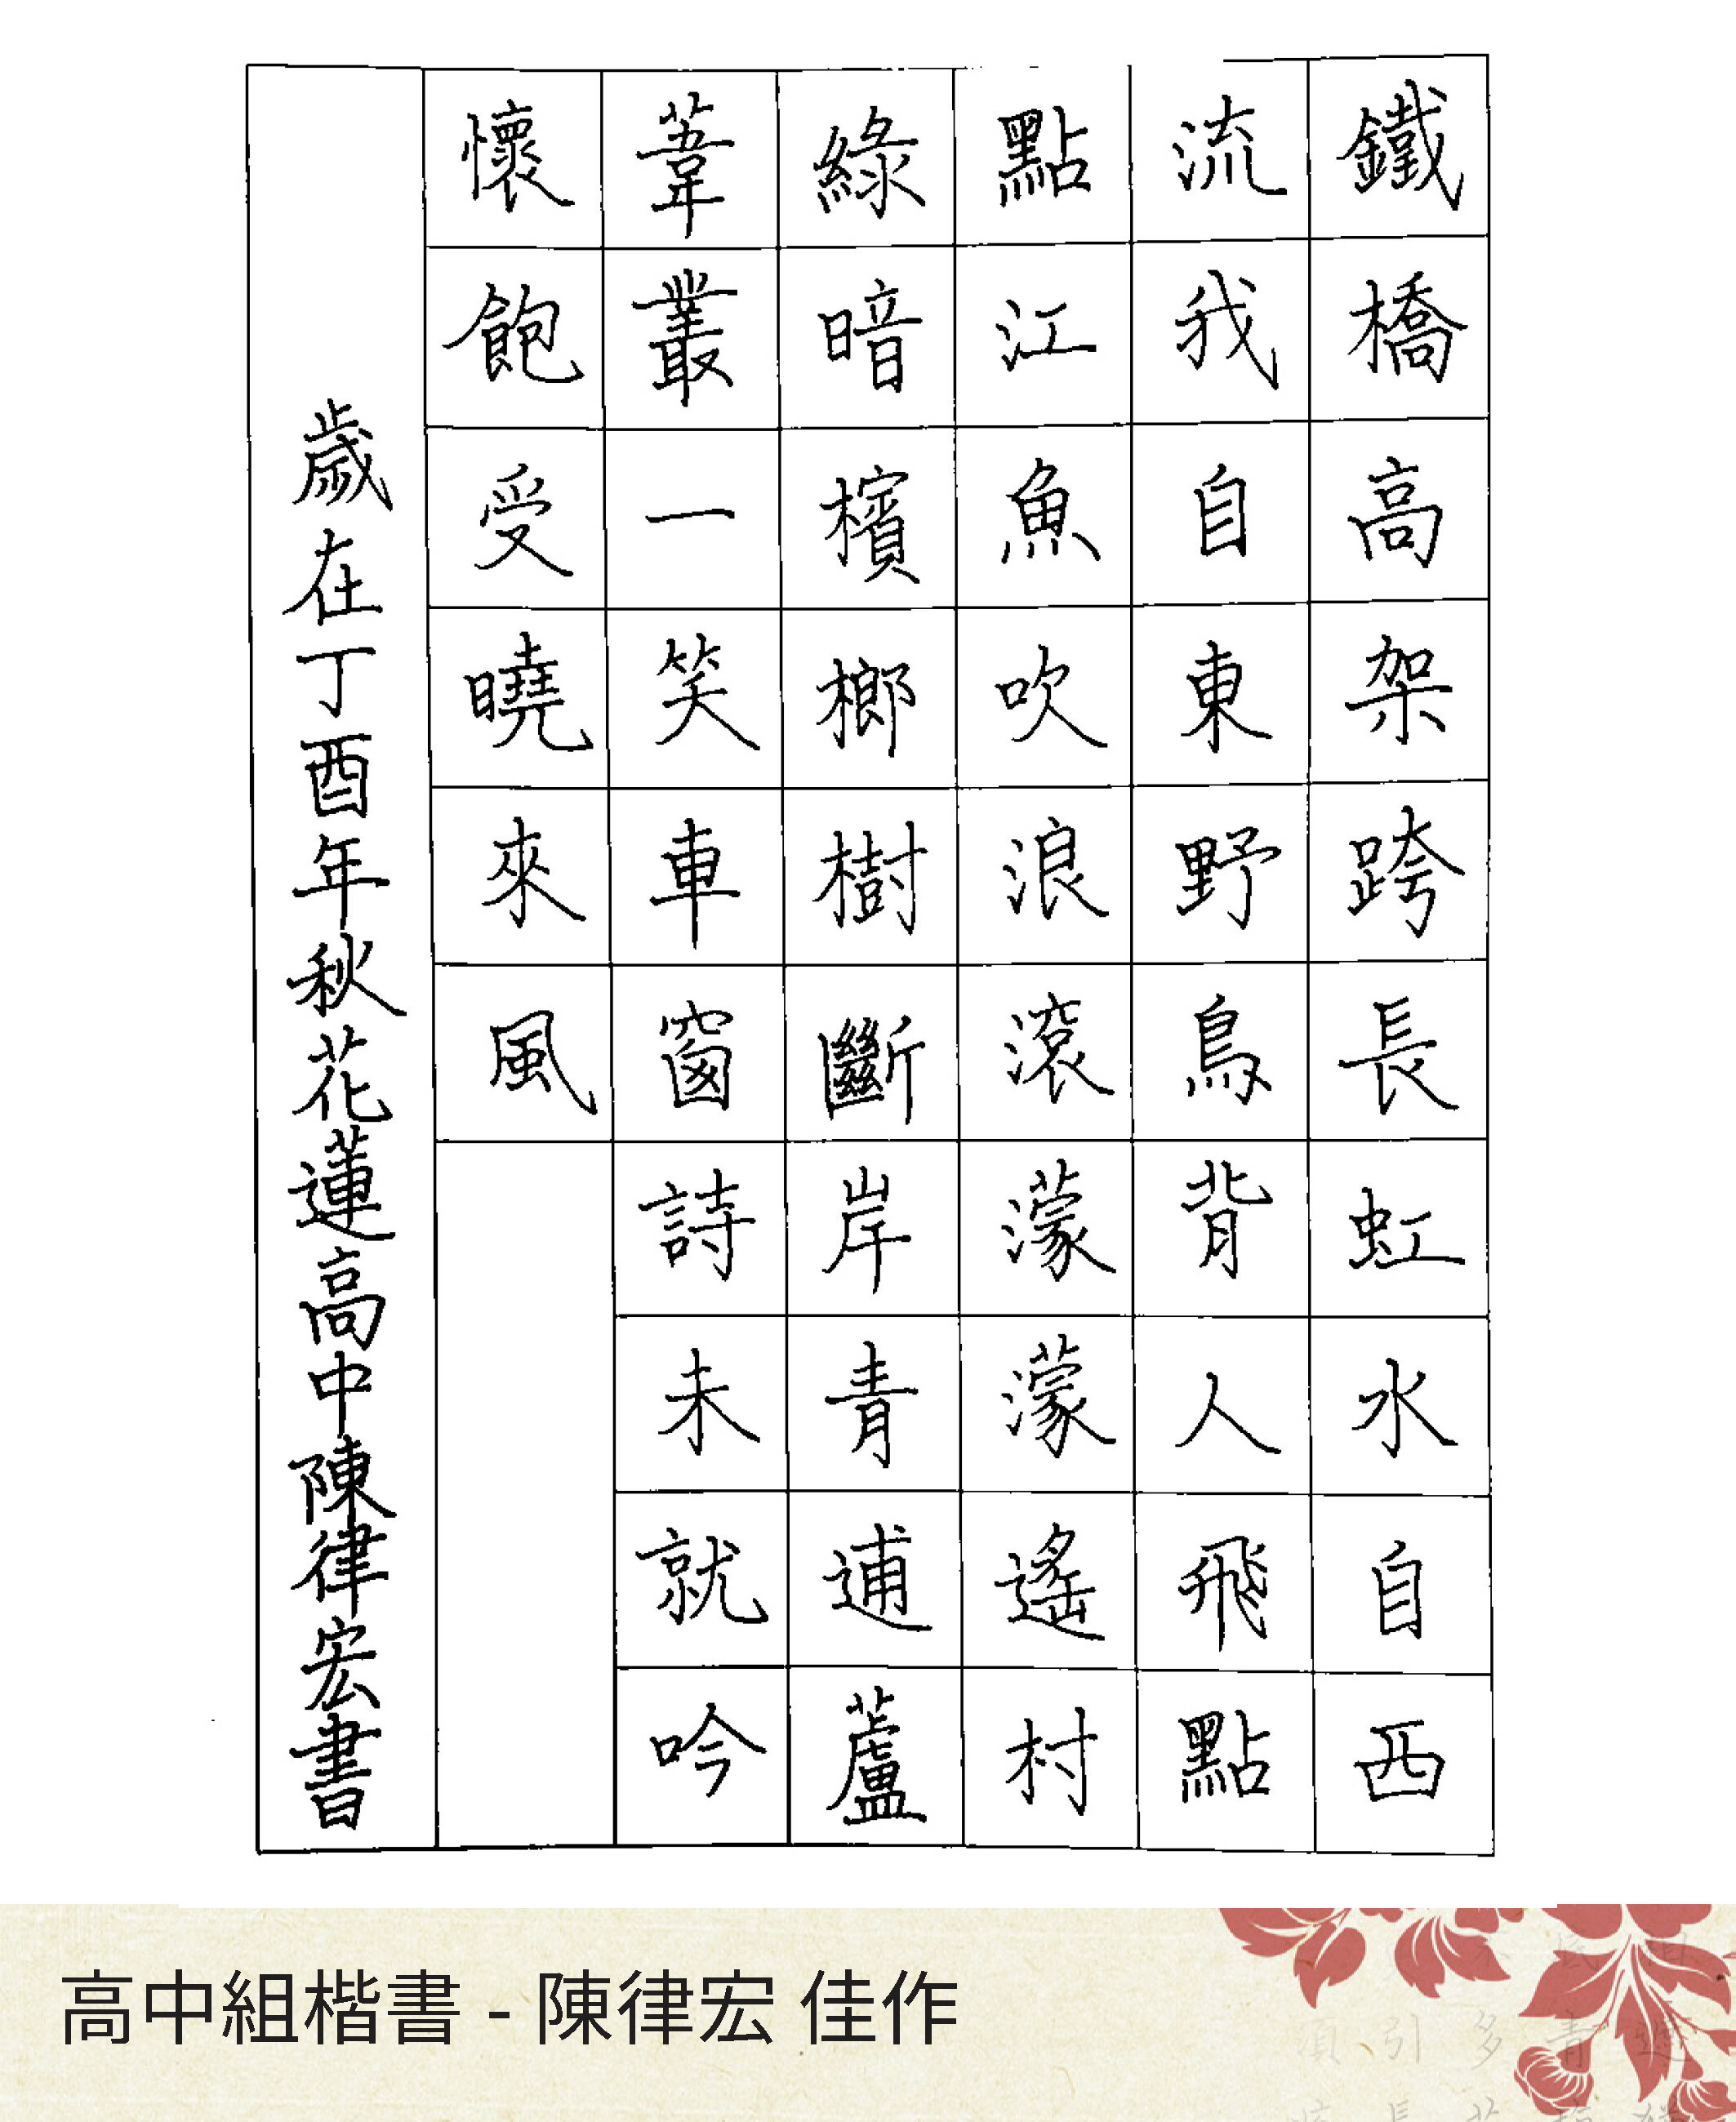 鐵橋高架跨長虹水自西
流我自東野鳥背人飛點
點江魚吹浪滾濛濛遙村
綠暗檳榔樹斷岸青逋蘆
葦叢一笑車窗詩未就吟
懷飽受曉來風
歲在丁酉年秋花蓮高中陳律宏書
高中組楷書 - 陳律宏 佳作